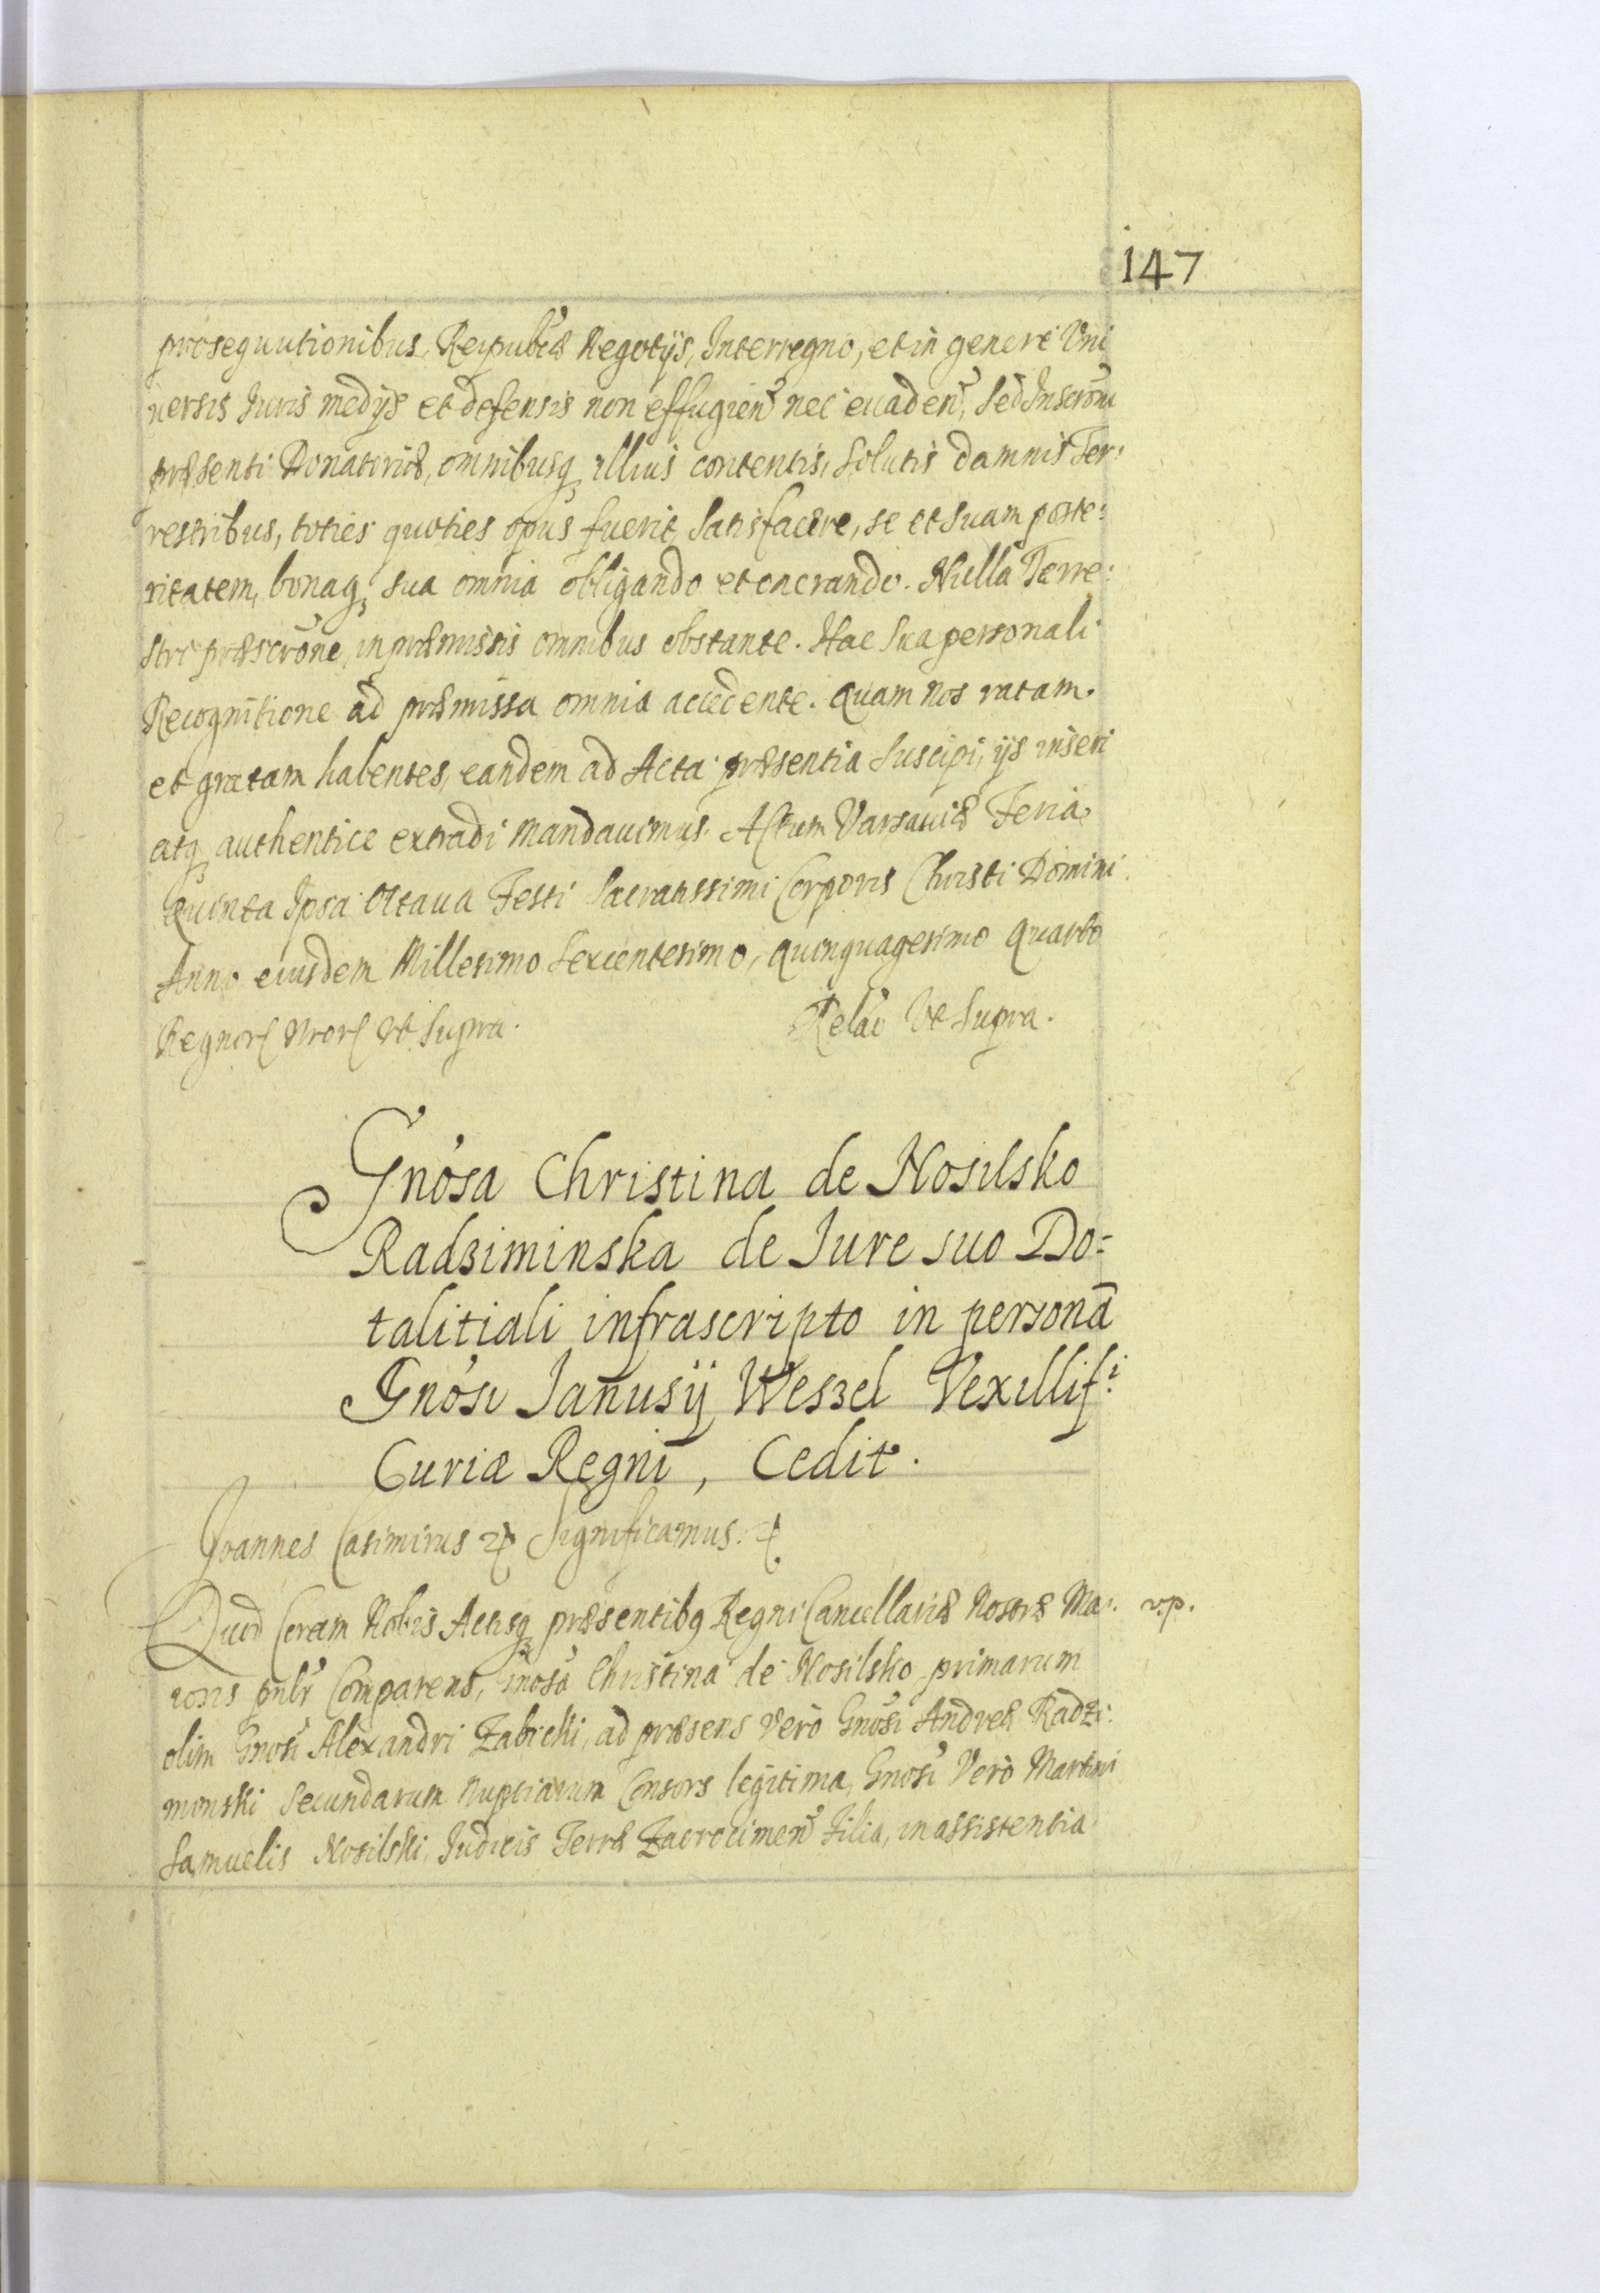 147
prosequutionibus, Reipubcæ Negotijs, Interregno, et in genere Uni
uersis Iuris medijs et defensis non effugien̄ nec euaden̄, sed Inscrōni
præsenti Donatoriæ, omnibusq́ illius contentis, solutis damnis Ter:
restribus, toties quoties opus fuerit satisfacere, se et suam poste:
ritatem, bonaq́ sua omnia obligando et onerando. Nulla Terre:
stri præscrōne, in præmissis omnibus obstante. Hac sua personali
Recognitione ad præmissa omnia accedente. Quam nos ratam
et gratam habentes, eandem ad Acta præsentia suscipi, ijs inseri
atq́ authentice extradi mandauimus. Actum Varsauiæ Feria
Quinta Ipsa Octaua Festi Sacratissimi Corporis Christi Domini
Anno eiusdem Millesimo Sexcentesimo, Quinquagesimo Quarto
Regnorͫ Nrorͫ ut supra. Relaō Ut supra.
Gnósa Christina de Nosilsko
Radziminska de Iure suo Do=
talitiali infrascripto in personā
Gnósi Janusÿ Weszel Vexillifⁱ:
Curiæ Regni, Cedit.
Joannes Casimirus ꝛc Significamus. ꝛc
Quod Coram Nobis Actisq́ præsentibꝯ Regni Cancellariæ Nostræ Ma:
v.p.
ioris pn̄lr Comparens, Gnosa Christina de Nosilsko primarum
olim Gnosi Alexandri Zabicki, ad præsens Verò Gnósi Andreæ Radzi:
minski Secundarum Nuptiarum Consors legitima, Gnosi Verò Martini
Samuelis Nosilski, Iudicis Terræ Zacrocimen̄ Filia, in assistentia